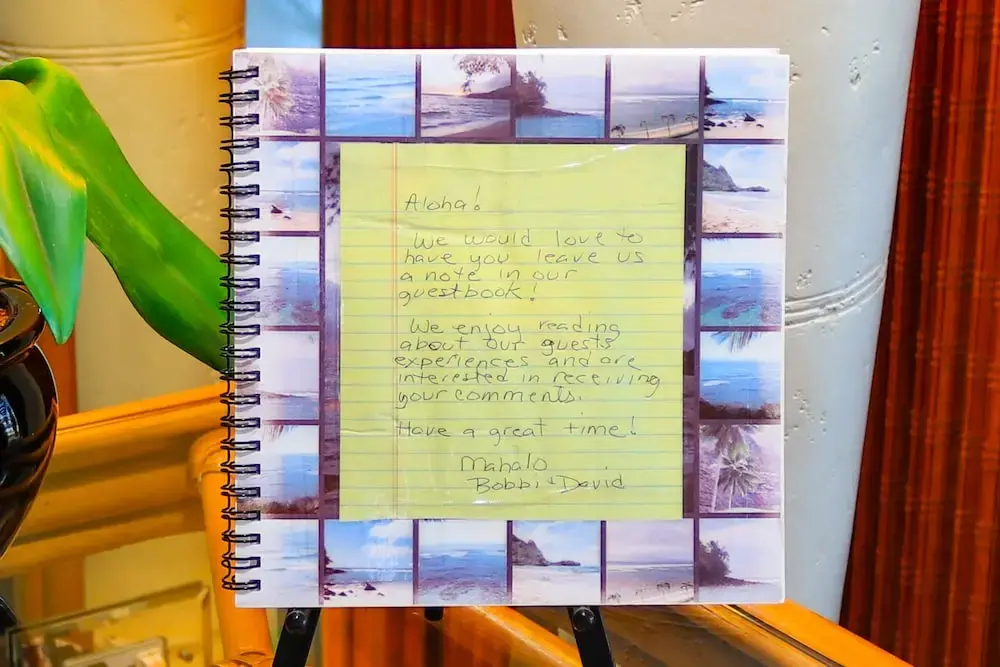 Aloha!
We would love to
have you leave us
a note in our
guestbook!
We enjoy reading
about our guests
experiences and are
interested in receiving
your comments.
Have a great time!
Mahalo
Bobbi + David